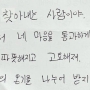 찾아내는 사람이야.
서 네 마음을 통과하게
따뜻해지고 고요해져.
의 온기를 나누어 받기